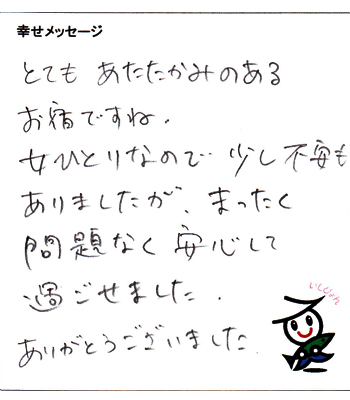 幸せメッセージ
とても あたたかみのある
お宿ですね.
女ひとりなので 少し不安も
ありましたが、まったく
問題なく安心して
過ごせました.
ありがとうございました.